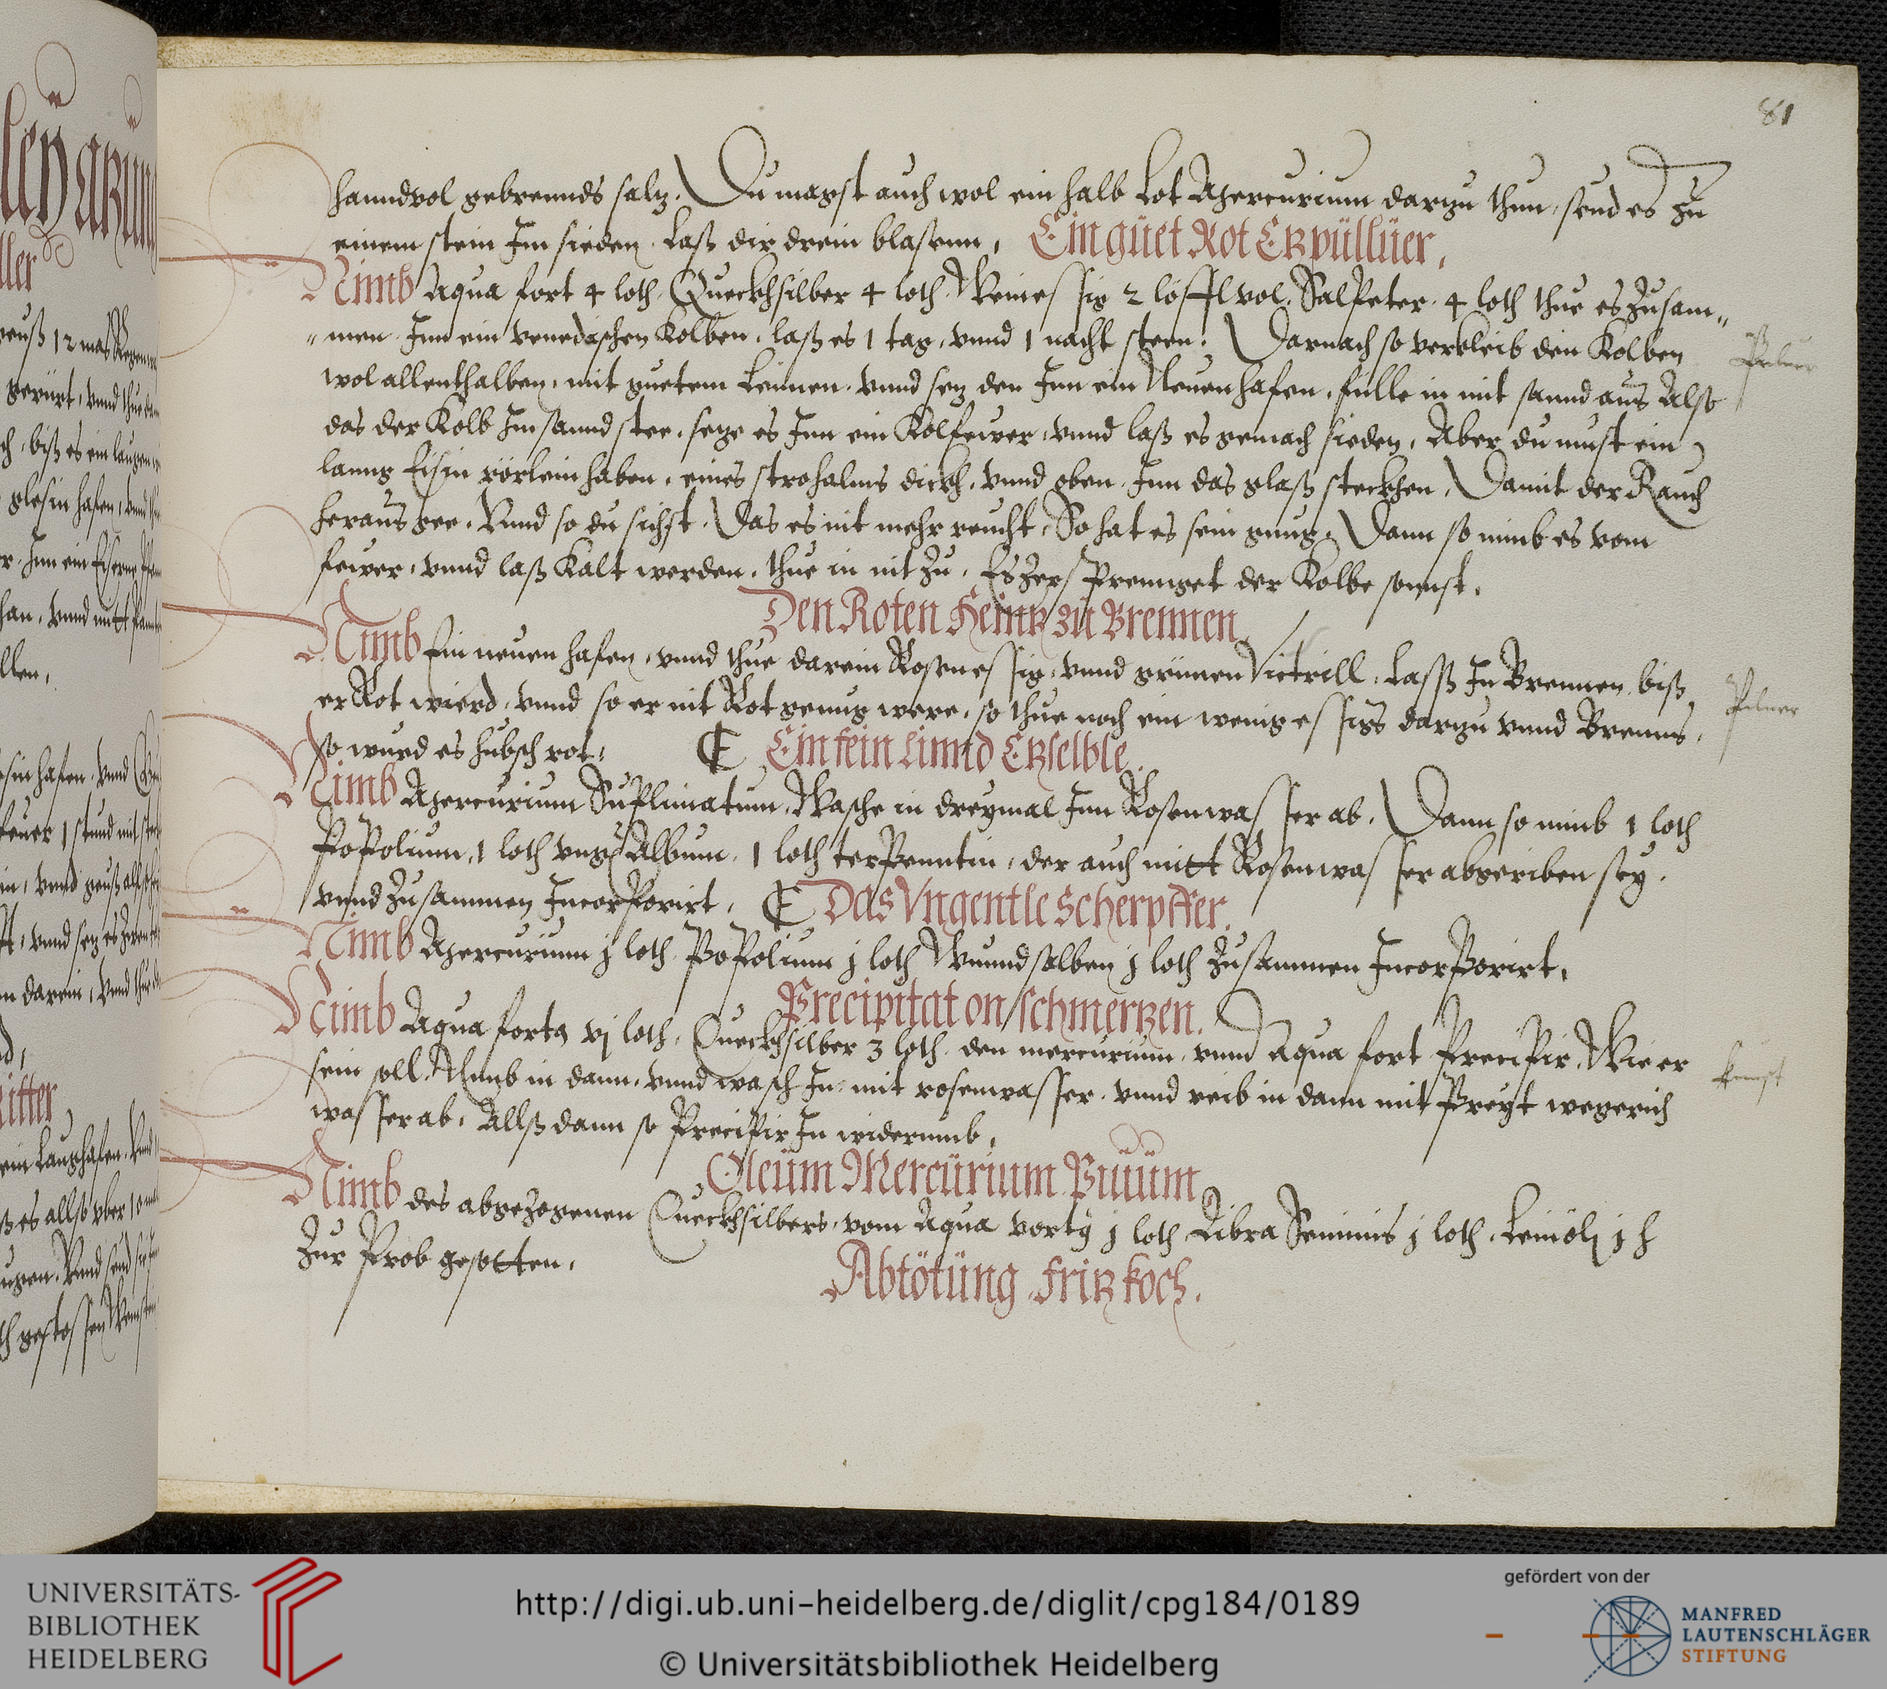 81
hanndvol gebrennds saltz. Du magst auch wol ein halb Lot Mercurium dartzu thun, seud es zu
einem stein Im sieden. Laß dir drein blasenn,
Ein güet Rot Etzpüllüer,
Nimb Aqua fort 4 loth. Queckhsilber 4 loth. Weinessig 2 löffl vol. Salpeter. 4 loth thue es Zusam„
„men. Inn ein venedischen Kolben, laß es 1 tag, vnnd 1 nacht steen. Darnach so verkleib den Kolben
Puluer
wol allenthalben, mit guetem Leimen. vnnd setz den Inn ein Neuen hafen, fülle in mit sannd aus Also
das der Kolb Im sannd stee, setze es Inn ein Kolfewer, vnnd laß es gemach sieden, Aber du must ein
lanng Eisin rörlein haben, eines strohalms dickh, vnnd oben Inn das glaß steckhen, Damit der Rauch
heraus gee, Vnnd so du sichst, Das es nit mehr reucht, So hat es sein gnug, Dann so nimb es vom
fewer, vnnd laß Kalt werden, thue in nit zu, Es zersprennget der Kolbe sonnst.
Den Roten Heintz zü Brennen
Nimb Ein neuen hafen, vnnd thue darein Rosenessig, vnnd grünen Victrill, Lasß In Brennen biß
er Rot wierd, vnnd so er nit Rot genug were, so thue noch ein wenig essigs dartzu vnnd Brenns,
Puluer
so wurd es hübsch rot.
Ein fein Linnd Etzselble.
Nimb Mercurium Suplimatum, Wasche in dreymal Inn Rosenwasser ab, Dann so nimb 1 loth
Popolium, 1 loth vng Album, 1 loth terpenntin, der auch mitt Rosenwasser abgeriben sey.
vnnd Zusammen Incorporirt,
Das Vngentle Scherpffer.
Nimb Mercurium j loth Popolium j loth Wunndsalben j loth Zusammen Incorporirt,
Precipitat on schmertzen.
Nimb Aqua fortis vj loth, Queckhsilber 3 loth. den mercurium, vnnd Aqua fort Precipir, Wie er
sein soll. Nimb in dann, vnnd wasch In mit rosenwasser. vnnd reib in dann mit Preyt wegerich
kunst
wasser ab, Allß dann so Precipir In widerumb,
Oleüm Mercürium Viuüm
Nimb des abgezogenen Queckhsilbers, vom Aqua vortis j loth Libra Seminis j loth, Leinöli j
Zur Prob gesotten,
Abtötüng fritz koch.
UNIVERSITÄTS-
BIBLIOTHEK
HEIDELBERG
http://digi.ub.uni-heidelberg.de/diglit/cpg184/0189
© Universitätsbibliothek Heidelberg
gefördert von der
MANFRED
LAUTENSCHLÄGER
STIFTUNG